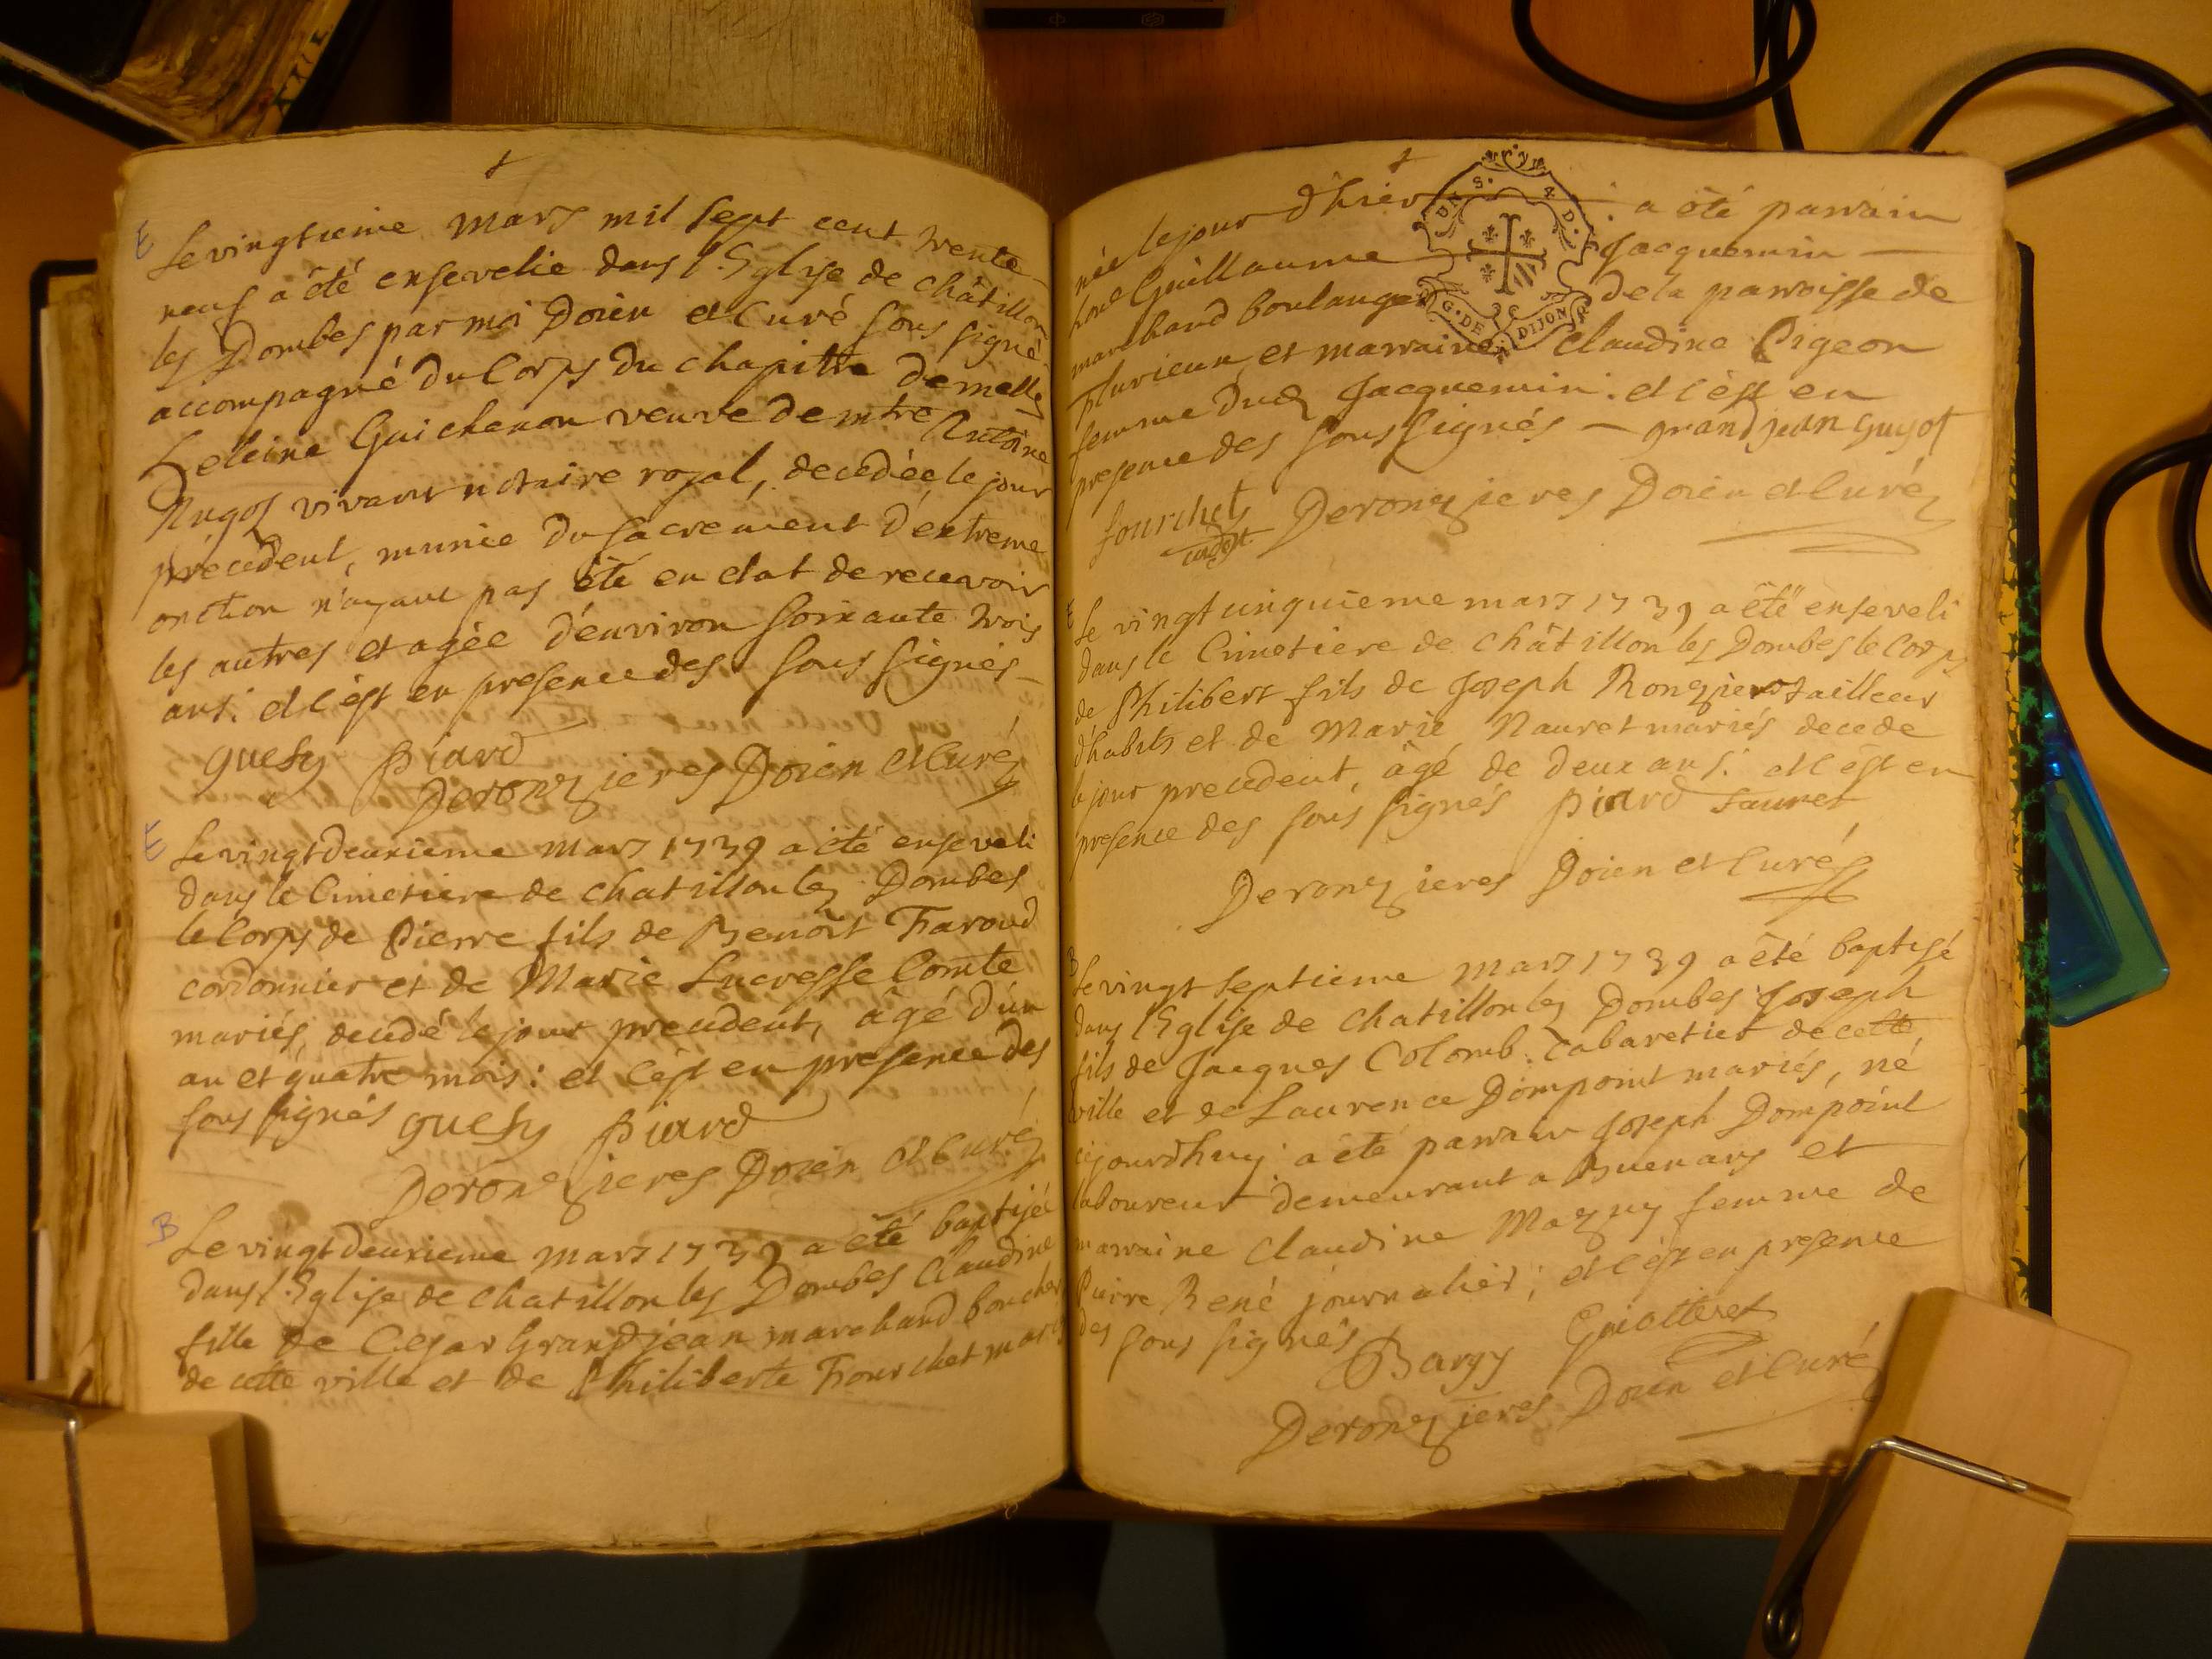 E Le vingtieme mars mil sept cent trente
neuf a été ensevelie dans l'Eglise de châtillon
les Dombes par moi Doien et Curé sous signé
accompagné du Corps du chapitre demelle
heleine Guichenon veuve de mtre Antoine
vivant notaire roial, decedée le jour
précédent, munie du sacrement d'extreme
onction n'ayant pas été en etat de recevoir
les autres et agée d'environ soixante trois
ans: et c'est en presence des sous signés
guesy piard
Deronzieres Doien et Curé
E Le vingt deuxieme mars 1739 a été enseveli
dans le Cimetiere de chatillon les Dombes
le Corps de Pierre fils de Benoît Faroud
cordonnier et de Marie Lucresse Comte
mariés, decedé le jour precedent, âgé d'un
an et quatre mois: et c'est en presence des
sous signés guesy piard
Deronzieres Doien et Curé
B Le vingt deuxieme mars 1739 a été baptisée
dans l'Eglise de chatillon les Dombes Claudine
fille de Cesar Grandjean marchand boucher
de cette ville et de Philiberte Fourchet mariés
née le jour d'hier : a été parrain
honé Guillaume Jacquemin
marchand boulanger de la parroisse de
Flurieux, et marraine Claudine Pigeon
femme dud Jacquemin: et c'est en
presence des sous signés grand jean guyot
fourchet
Deronzieres Doien et Curé
E Le vingt cinquieme mars 1739 a été enseveli
dans le Cimetiere de châtillon les Dombes le Corps
de Philibert fils de Joseph Ronzier tailleur
d'habits et de Marie Nauret mariés decede
le jour precedent, âgé de deux ans: et c'est en
presence des sous signés piard
Deronzieres Doien et Curé
B Le vingt septieme mars 1739 a été baptisé
dans l'Eglise de chatillon les Dombes Joseph
fils de Jacques Colomb cabaretier de cette
ville et de Laurence Dompoint mariés, né
cejourdhuy: a été parrain Joseph Dompoint
laboureur demeurant a Buenans et
marraine Claudine Mazuy femme de
Pierre René journalier; et c'est en presence
des sous signés
Bargy Guiotteret
Deronzieres Doien et Curé
G. DE DIJON